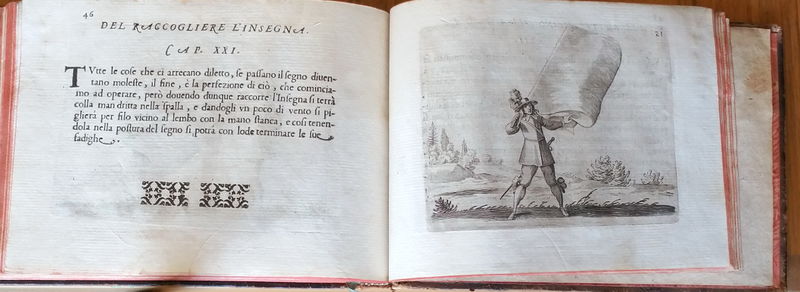 46
DEL RACCOGLIERE L'INSEGNA.
CAP. XXI.
TVtte le cose che ci arrecano diletto, se passano il segno diuen-
tano moleste, il fine, è la perfezione di ciò, che comincia-
mo ad operare, però douendo dunque raccorre l'Insegna si terrà
colla man dritta nella spalla, e dandogli vn poco di vento si pi-
glierà per filo vicino al lembo con la mano stanca, e così tenen-
dola nella postura del segno si potrà con lode terminare le sue
fadighe.
21